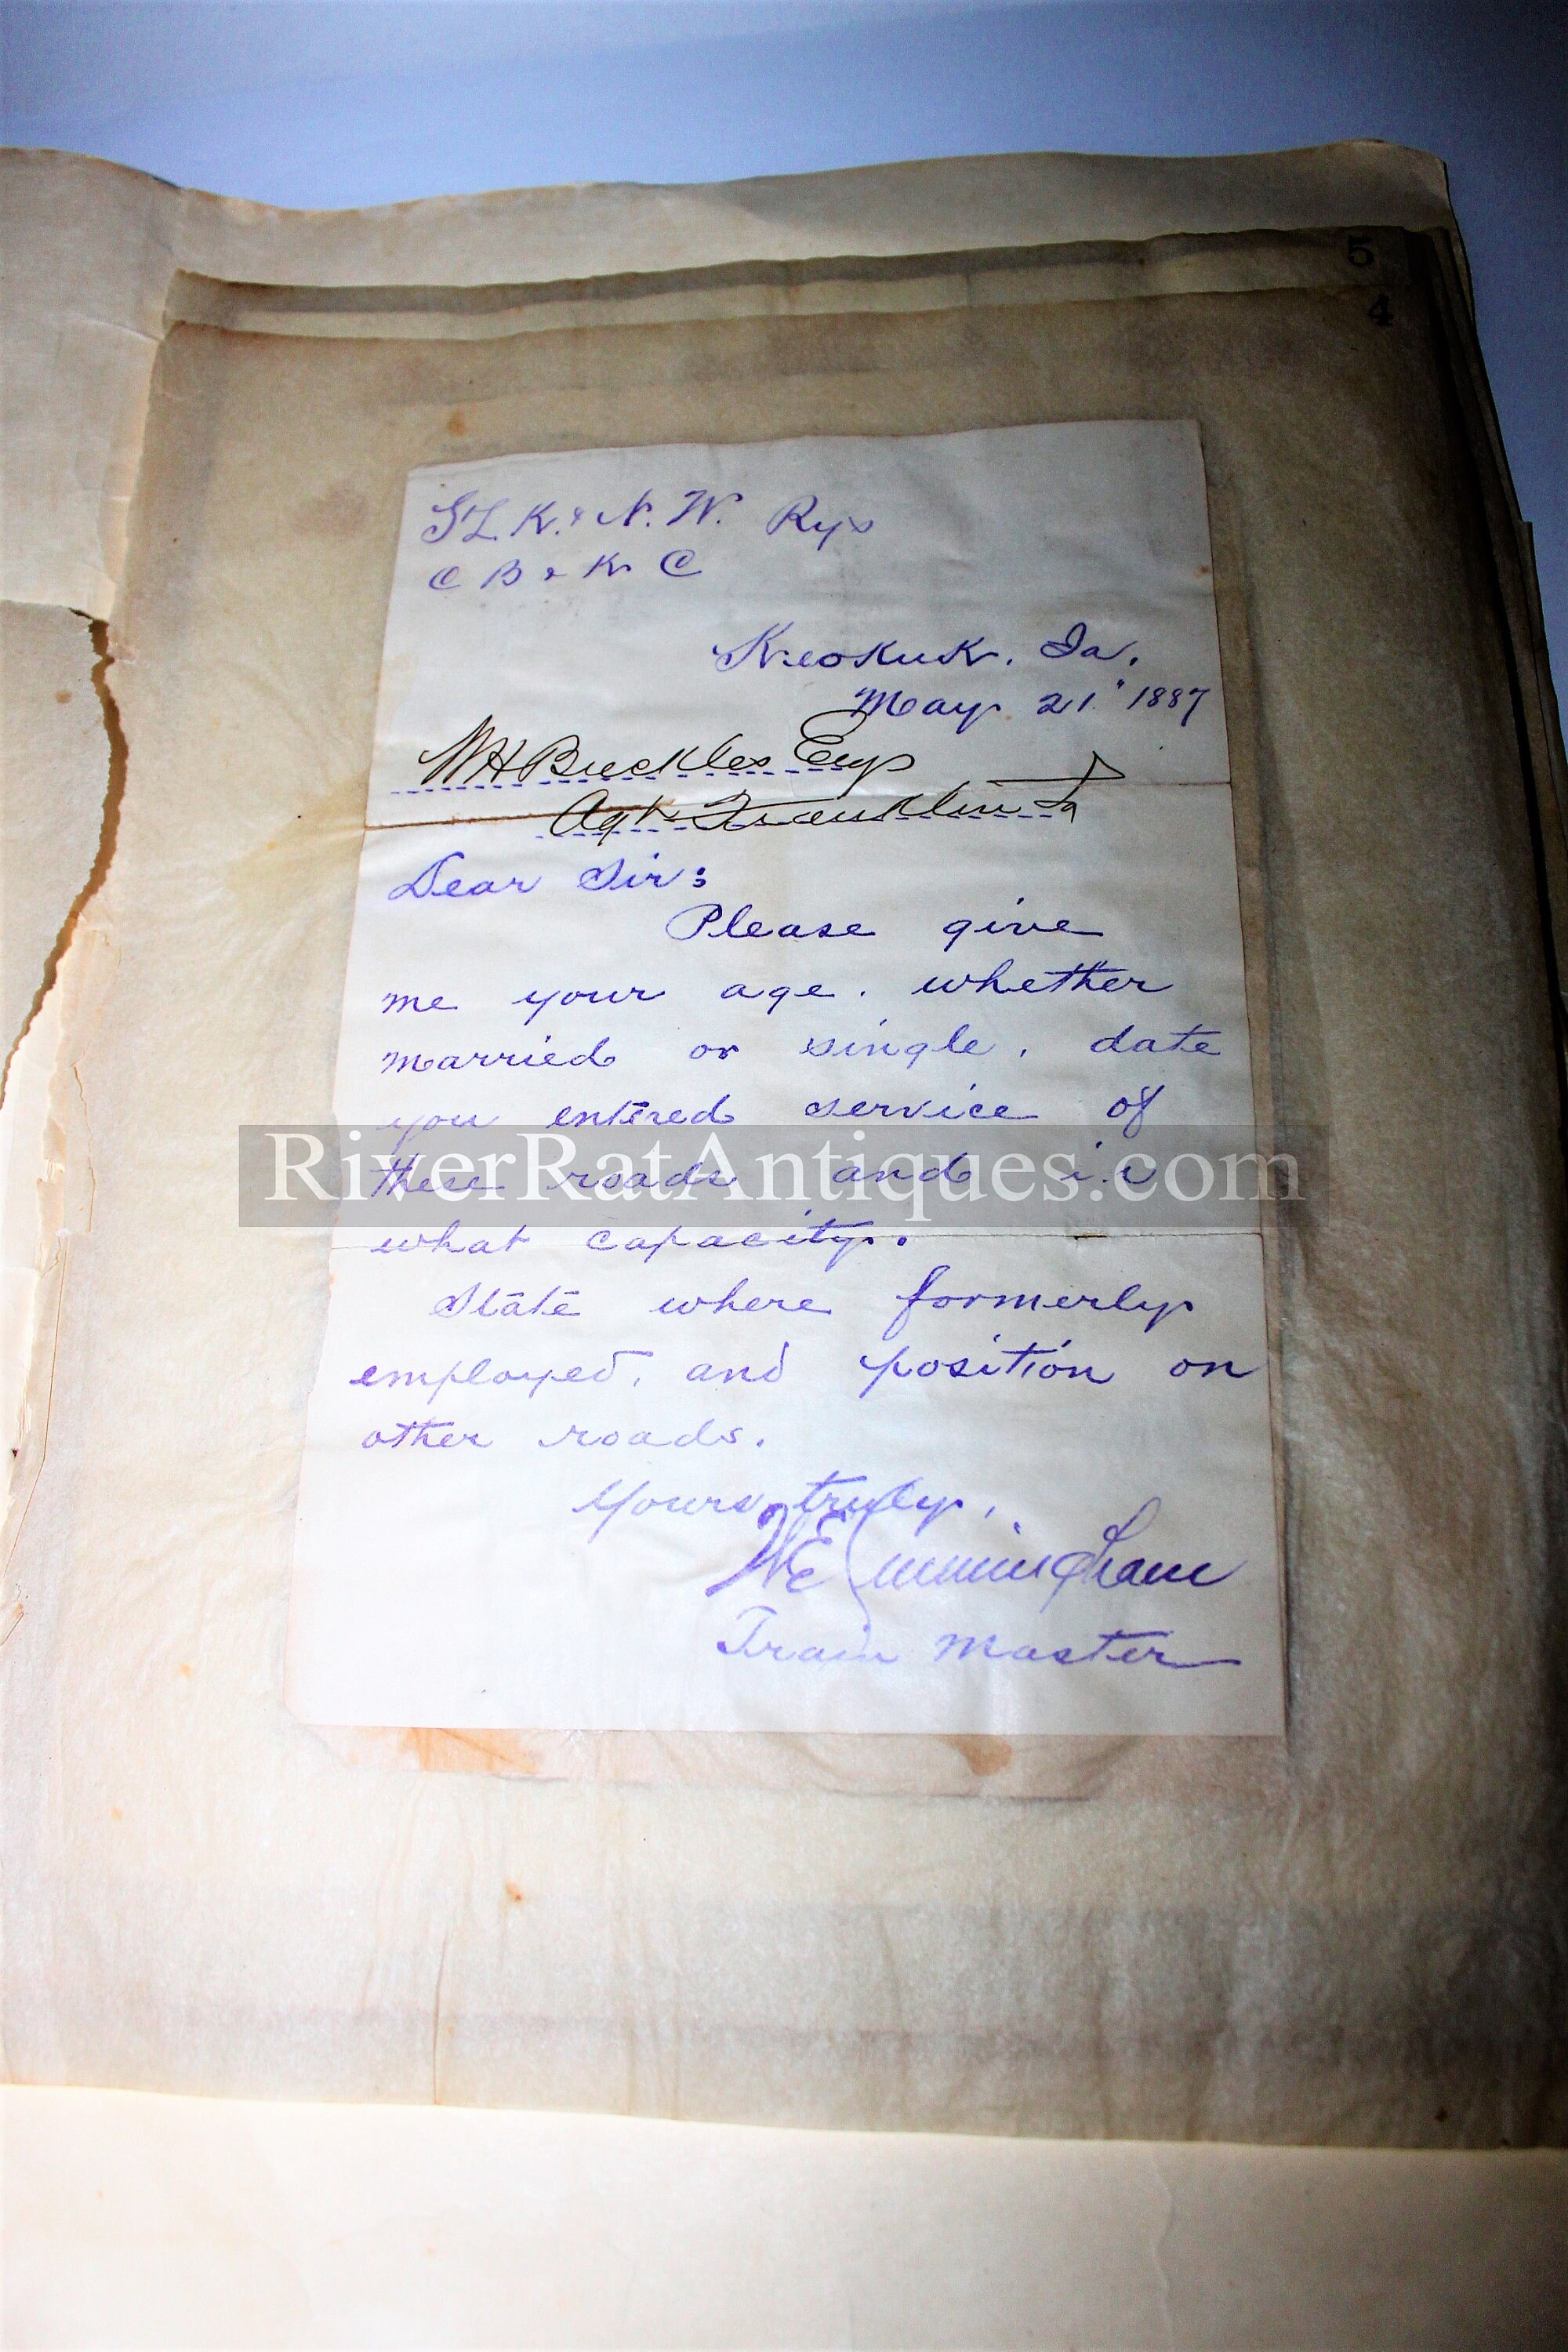 5
4
St L. K. & N. W. Rys
C B & K C
Keokuk. Ia.
May 21" 1887
WH Buckles Esq
Agt. Franklin Ia
Dear Sir:
Please give
me your age. whether
married or single. date
you entered service of
these roads and in
what capacity.
State where formerly
employed, and position on
other roads.
Yours truly,
WE Cunningham
Train Master
RiverRatAntiques.com